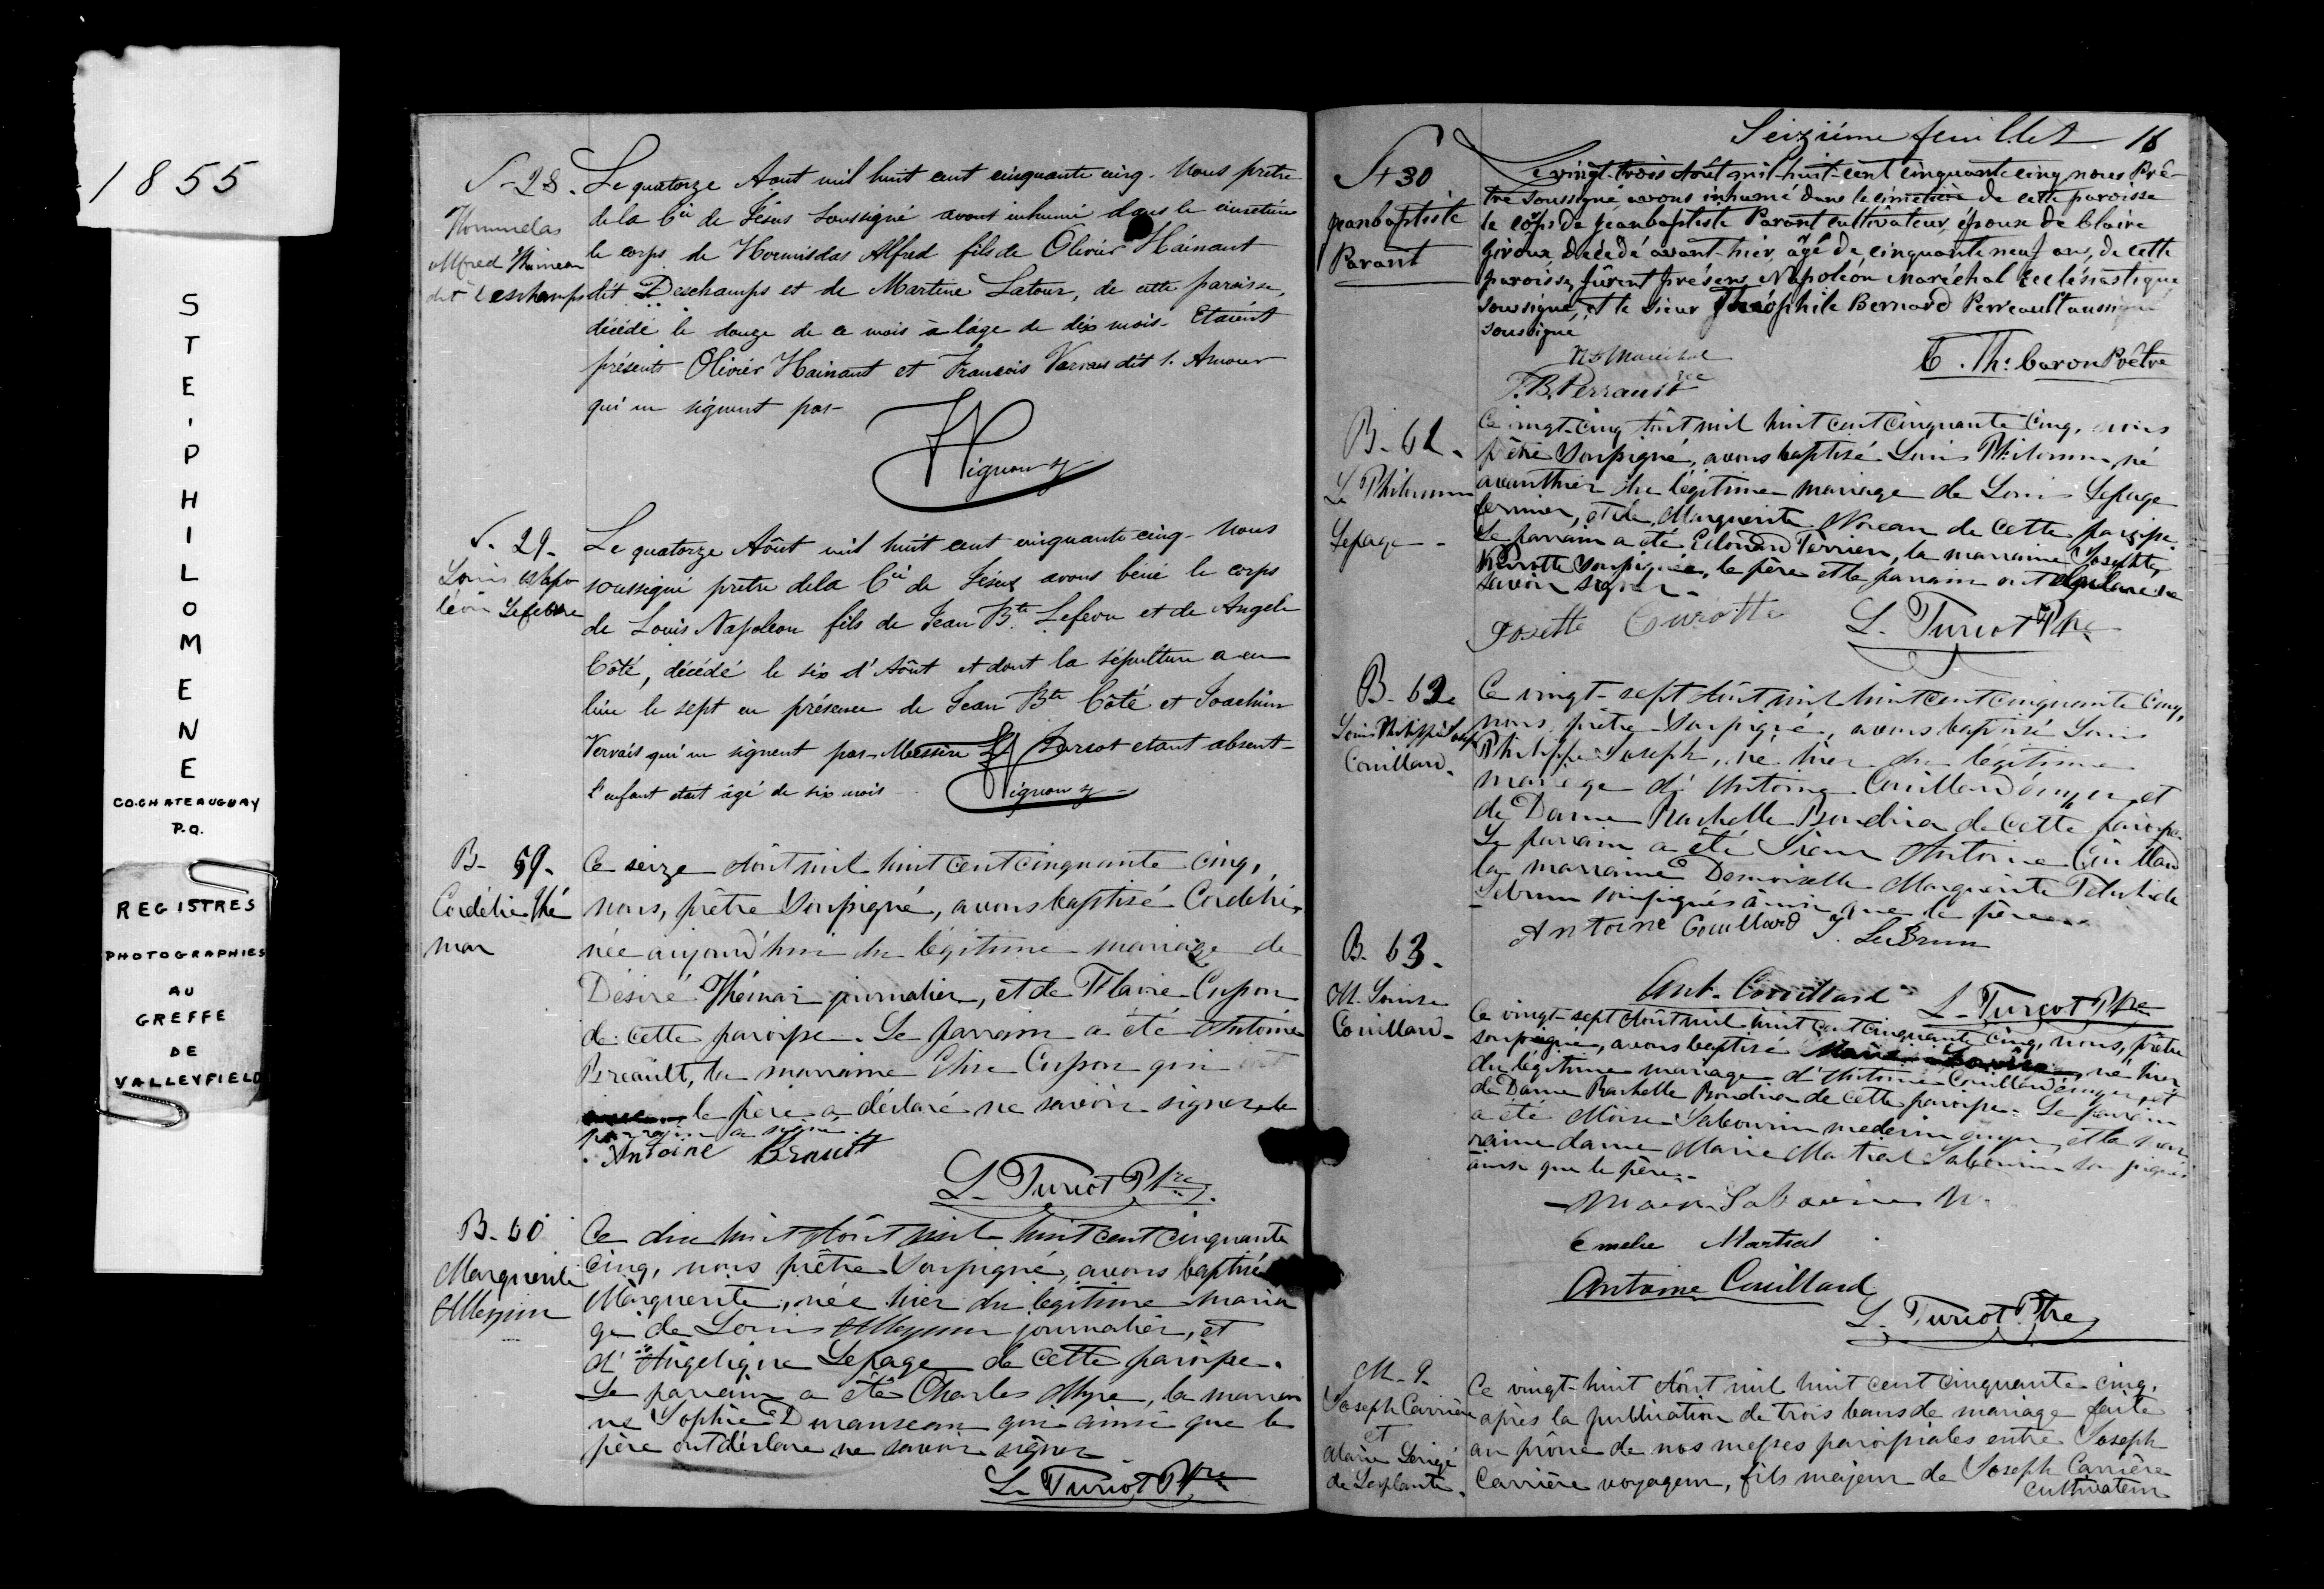 1855
STE-PHILOMENE
CO. CHATEAUGUAY
P.Q.
REGISTRES
PHOTOGRAPHIES
AU
GREFFE
DE
VALLEYFIELD
S-28.
Alfred
dit Deschamps
Le quatorze Aout mil huit cent cinquante cinq. Nous prêtre
de la Cie de Jésus soussigné avons inhumé dans le cimetière
le corps de Hormisdas Alfred fils de Olivier Hainaut
dit Deschamps et de Martine Latour, de cette paroisse,
décédé le douze de ce mois à l'âge de dix mois. Etaient
présents Olivier Hainaut et François Vervais dit l'Amour
qui ne signent pas-
Vignon sj
S. 29-
Louis Napo
léon Lefebvre
Le quatorze Aôut mil huit cent cinquante cinq- Nous
soussigné prêtre de la Cie de Jésus avons béni le corps
de Louis Napoleon fils de Jean Bte Lefevre et de Angele
Côté, décédé le six d'Aôut et dont la sépulture a eu
lieu le sept en présence de Jean Bte Côté et Joachim
Vervais qui ne signent pas. Messire Turcot etant absent-
L'enfant etait âgé de six mois-
Vignon sj-
B- 59-
Cordélie Thé
mar
Ce seize Aôut mil huit cent cinquante cinq,
nous, prêtre soussigné, avons baptisé Cordélie,
née aujourd'hui du légitime mariage de
Désiré Thémar journalier, et de Flavie Cusson
de cette paroisse. Le parrain a été Antoine
Breault, la marraine Elise Cusson qui
le père a déclaré ne savoir signer, le
parrain a signé.
Antoine Brault
L. Turcot Ptre
B. 60
Marguerite
Ce dix huit Aôut mil huit cent cinquante
cinq, nous prêtre soussigné, avons baptisé
Marguerite, née hier du légitime maria
ge de Louis journalier, et
d'Angelique Lepage de cette paroisse.
Le parrain a été Charles , la marrai
ne Sophie Duranseau qui ainsi que le
père ont déclaré ne savoir signer
L. Turcot Ptre
Seizième feuillet 16
S+30
jeanbaptiste
Parant
Le vingt-trois Aôut mil-huit-cent cinquante cinq nous Prê-
tre soussigné avons inhumé dans le cimetière de cette paroisse
le corps de jeanbaptiste Parant cultivateur, époux de Claire
Giroux, décédé avant-hier, âgé de cinquante neuf ans, de cette
paroisse, fûrent présens Napoléon Maréchal Ecclésiastique
soussigné, et le sieur Théophile Bernard Perreault aussi
soussigné
N Maréchal
T. B. Perrault
C. Th: Caron Prêtre
B- 61-
Ls Philemon
Lepage-
Ce vingt-cinq Aôut mil huit cent cinquante cinq, nous
prêtre soussigné, avons baptisé Louis Philemon, né
avanthier du légitime mariage de Louis Lepage
fermier, et de Marguerite de cette paroisse.
Le parrain a été Edouard Terrien, la marraine Josephte
soussignée, le père et le parrain ont déclaré ne
savoir signer-
Josette Turotte
L. Turcot Ptre
B- 62
Louis Philippe Joseph
Couillard-
Ce vingt-sept Aôut mil huit cent cinquante cinq,
nous, prêtre soussigné, avons baptisé Louis
Philippe Joseph, né hier du légitime
mariage d'Antoine Couillard écuyer et
de Dame Rachelle Boudria de cette paroisse.
Le parrain a été Sieur Antoine Couillard
la marraine Demoiselle Marguerite
Lebrun soussignés ainsi que le père.
Antoine Couillard
LeBrun
Ant. Couillard
L. Turcot Ptre
B. 63-
M. Louise
Couillard-
Ce vingt-sept Aôut mil huit cent cinquante cinq, nous, prêtre
soussigné, avons baptisé Marie Louise, née hier
du légitime mariage d'Antoine Couillard écuyer et
de Dame Rachelle Boudria de cette paroisse. Le parrain
a été Moïse Sabourin medecin écuyer, et la mar
raine dame Marie Martial Sabourin soussignés
ainsi que le père.-
Emelie Martial
Antoine Couillard
L. Turcot Ptre
M. 9-
Joseph Carrière
et
Marie
de Laplante.
Ce vingt-huit Aôut mil huit cent cinquante cinq,
après la publication de trois bans de mariage faite
au prône de nos messes paroissiales entre Joseph
Carrière voyageur, fils majeur de Joseph Carrière
cultivateur